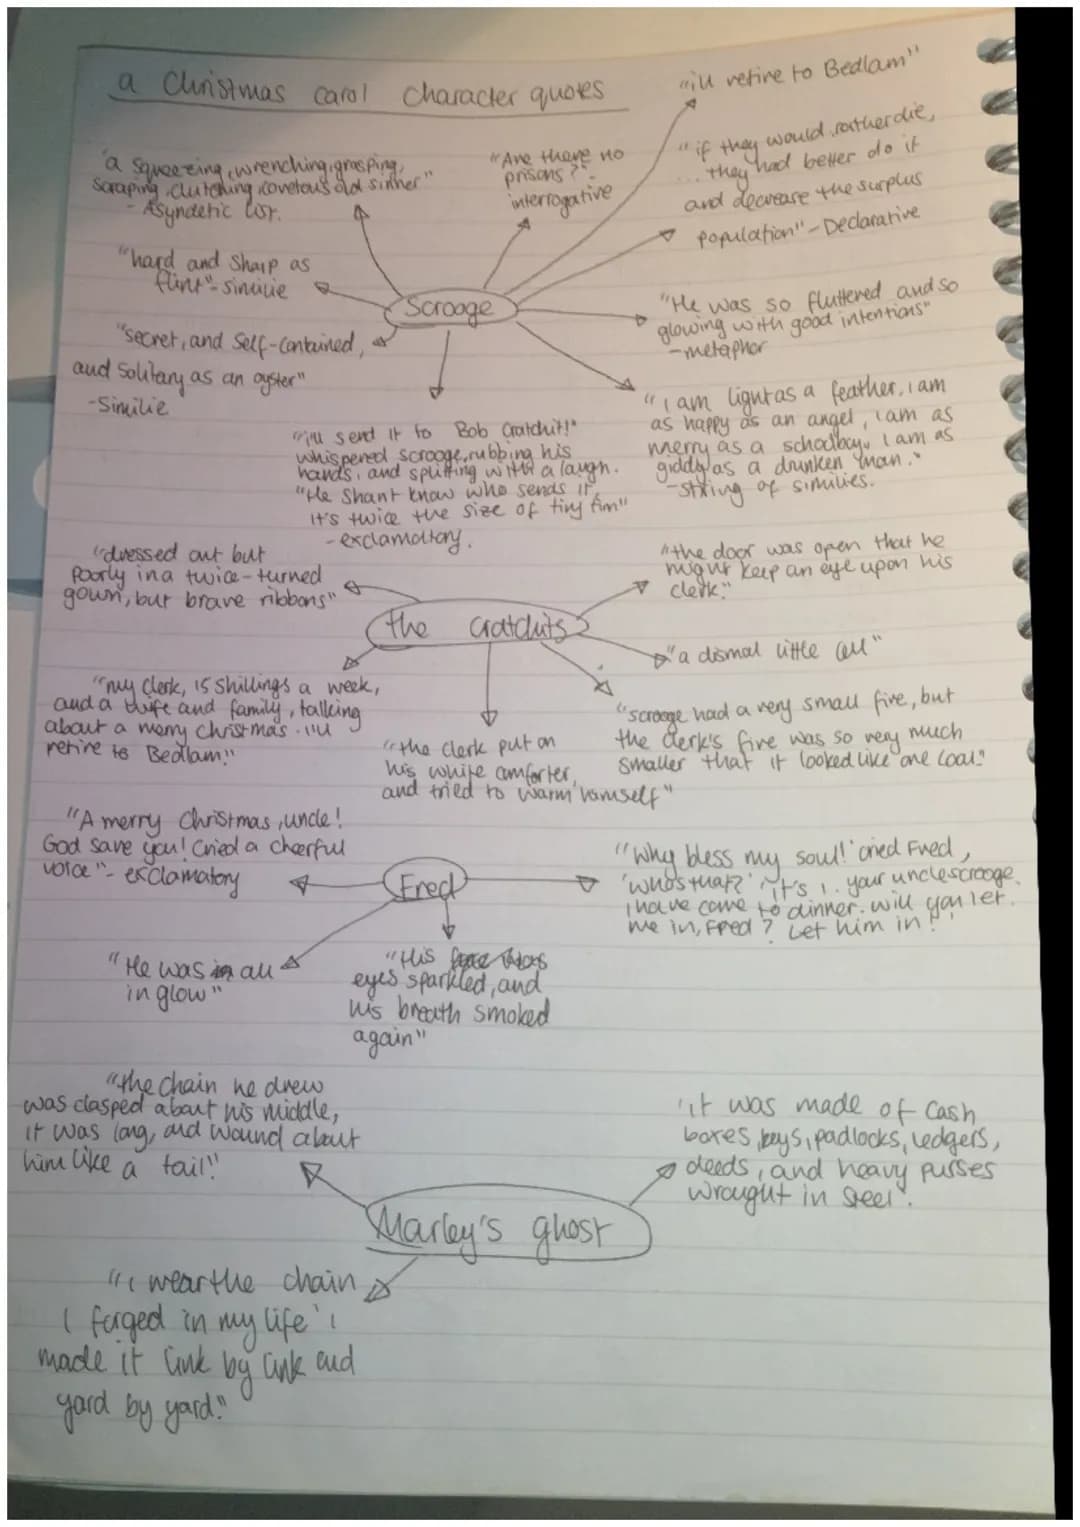 a Christmas carol character quotes
"i'll retire to Bedlam"
"a squeezing, wrenching, grasping,
scraping, clutching, covetous old sinner"
- Asyndetic list.
"Are there no
prisons?"-
interrogative
"if they would rather die,
... they had better do it
and decrease the surplus
population" - Declarative
"hard and sharp as
flint" - similie
Scrooge
"He was so fluttered and so
glowing with good intentions"
- metaphor
"secret, and self-contained,
and solitary as an oyster"
- Similie
"i am light as a feather, i am
as happy as an angel, i am as
merry as a schoolboy. I am as
giddy as a drunken man."
- string of similies.
"i'll send it to Bob Cratchit!"
whispered scrooge, rubbing his
hands, and splitting with a laugh.
"He shant know who sends it,
it's twice the size of tiny tim"
- exclamatory.
"dressed out but
poorly in a twice-turned
gown, but brave ribbons"
the cratchits
"the door was open that he
might keep an eye upon his
clerk."
"a dismal little cell"
"my clerk, 15 shillings a week,
and a wife and family, talking
about a merry christmas. i'll
retire to Bedlam."
"the clerk put on
his white comforter,
and tried to warm himself"
"scrooge had a very small fire, but
the clerk's fire was so very much
smaller that it looked like one coal."
"A merry Christmas, uncle!
God save you! Cried a cheerful
voice" - exclamatory
Fred
"Why bless my soul!' cried Fred,
'who's that?' 'it's i. your uncle scrooge.
i have come to dinner. will you let
me in, Fred? Let him in!"
"He was in all
in glow"
"His face
eyes sparkled, and
his breath smoked
again"
"the chain he drew
was clasped about his middle,
it was long, and wound about
him like a tail."
"it was made of cash
boxes, keys, padlocks, ledgers,
deeds, and heavy purses
wrought in steel".
Marley's ghost
"i wear the chain
I forged in my life' i
made it link by link and
yard by yard."